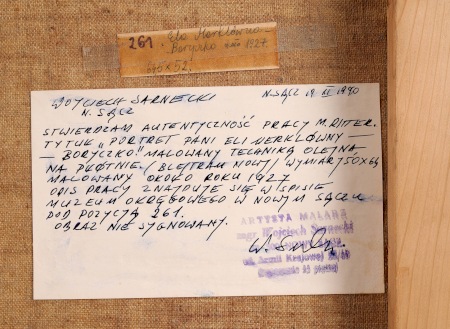 261. Ela Merklówna-
Boryczko około 1927
WOJCIECH SARNECKI
N. SĄCZ
N. SĄCZ 1990
STWIERDZAM AUTENTYCZNOŚĆ PRACY M. RITER.
TYTUŁ "PORTRET PANI ELI MERKLÓWNY-
- BORYCZKO" MALOWANY TECHNIKĄ OLEJNĄ
NA PŁÓTNIE, BLEJTRAM NOWY, WYMIARY 50X64
MALOWANY OKOŁO ROKU 1927
OPIS PRACY ZNAJDUJE SIĘ W SPISIE
MUZEUM OKRĘGOWEGO W NOWYM SĄCZU
POD POZYCJĄ 261.
OBRAZ NIE SYGNOWANY.
ARTYSTA MALARZ
mgr Wojciech Sarnecki
ul. Armii Krajowej